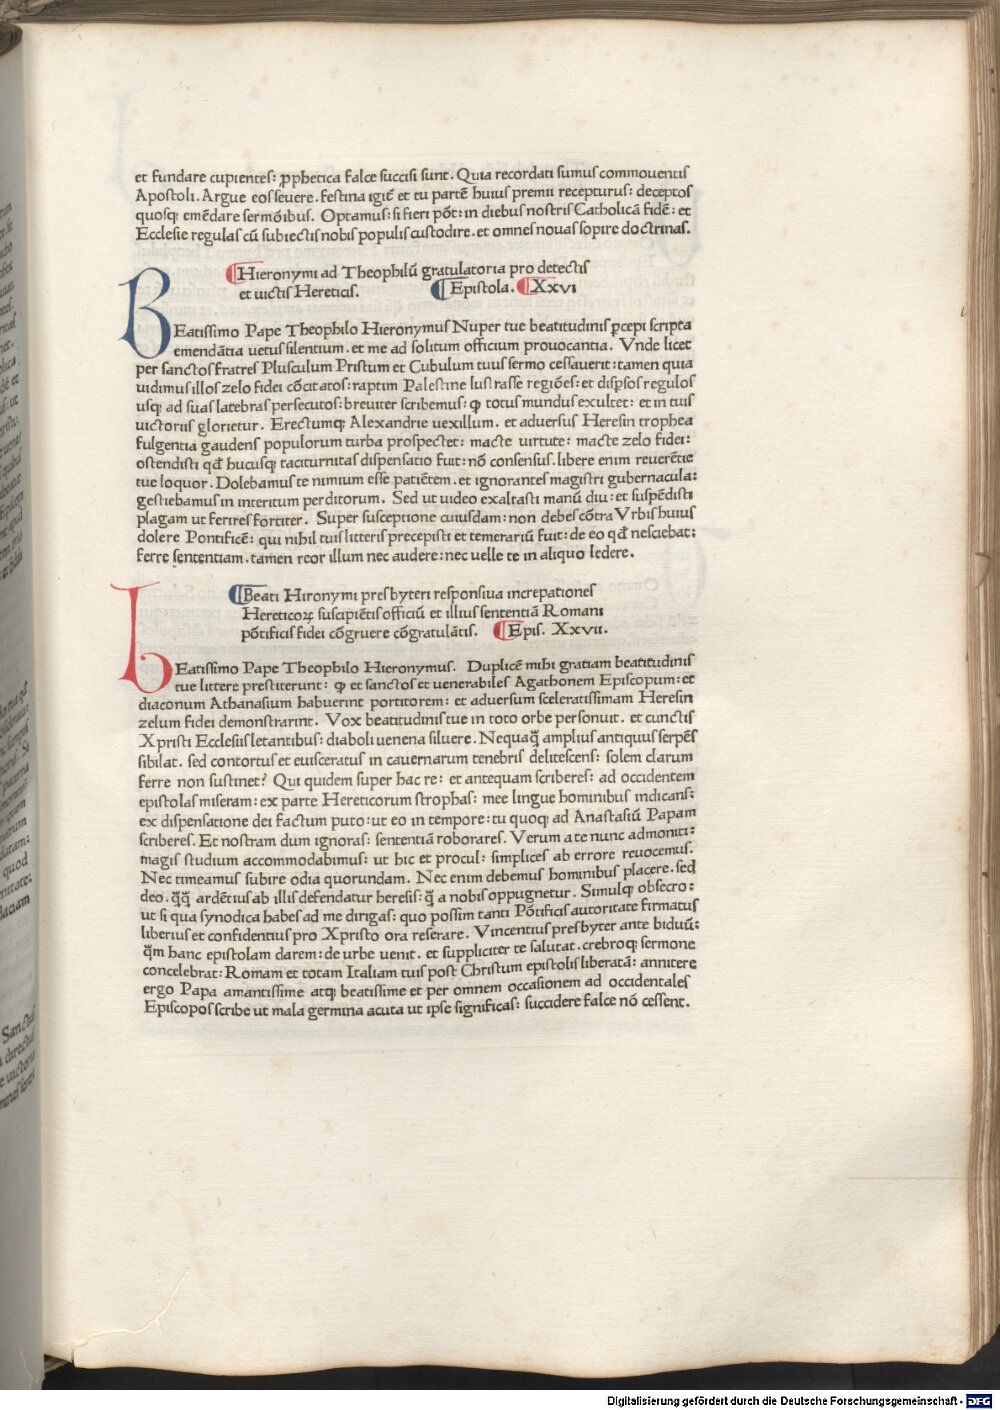 et fundare cupientes: ꝓphetica falce succisi sunt. Quia recordati sumus commouentis
Apostoli. Argue eos seuere. festina igit̃ et tu partẽ huius premii recepturus: deceptos
quosqꝫ emẽdare sermõibus. Optamus: si fieri põt: in diebus nostris Catholicã fidẽ: et
Ecclesie regulas cũ subiectis nobis populis custodire. et omnes nouas sopire doctrinas.
Hieronymi ad Theophilũ gratulatoria pro detectis
et uictis Hereticis. Epistola. XXVI
BEatissimo Pape Theophilo Hieronymus Nuper tue beatitudinis ꝑcepi scripta
emendãtia uetus silentium. et me ad solitum officium prouocantia. Vnde licet
per sanctos fratres Plusculum Pristum et Cubulum tuus sermo cessauerit: tamen quia
uidimus illos zelo fidei cõcitatos: raptim Palestine lustrasse regiões: et dispsos regulos
usqꝫ ad suas latebras persecutos: breuiter scribemus: ꝙ totus mundus exultet: et in tuis
uictoriis glorietur. Erectumqꝫ Alexandrie uexillum. et aduersus Heresin trophea
fulgentia gaudens populorum turba prospectet: macte uirtute: macte zelo fidei:
ostendisti qđ hucusqꝫ taciturnitas dispensatio fuit: nõ consensus. libere enim reuerẽtie
tue loquor. Dolebamus te nimium esse patiẽtem. et ignorantes magistri gubernacula:
gestiebamus in interitum perditorum. Sed ut uideo exaltasti manũ diu: et suspẽdisti
plagam ut ferires fortiter. Super susceptione cuiusdam: non debes cõtra Vrbis huius
dolere Pontificẽ: qui nihil tuis litteris precepisti et temerariũ fuit: de eo qđ nesciebat:
ferre sententiam. tamen reor illum nec audere: nec uelle te in aliquo ledere.
Beati Hironymi presbyteri responsiua increpationes
Hereticoꝝ suscipiẽtis officiũ et illius sententiã Romani
põtificis fidei cõgruere cõgratulãtis. Epis. XXvii.
bEatissimo Pape Theophilo Hieronymus. Duplicẽ mihi gratiam beatitudinis
tue littere prestiterunt: ꝙ et sanctos et uenerabiles Agathonem Episcopum: et
diaconum Athanasium habuerint portitorem: et aduersum sceleratissimam Heresin
zelum fidei demonstrarint. Vox beatitudinis tue in toto orbe personuit. et cunctis
Xpristi Ecclesiis letantibus: diaboli uenena siluere. Nequaq̃ amplius antiquus serpẽs
sibilat. sed contortus et euisceratus in cauernarum tenebris delitescens: solem clarum
ferre non sustinet? Qui quidem super hac re: et antequam scriberes: ad occidentem
epistolas miseram: ex parte Hereticorum strophas: mee lingue hominibus indicans:
ex dispensatione dei factum puto: ut eo in tempore: tu quoqꝫ ad Anastasiũ Papam
scriberes. Et nostram dum ignoras: sententiã roborares. Verum a te nunc admoniti:
magis studium accommodabimus: ut hic et procul: simplices ab errore reuocemus.
Nec timeamus subire odia quorundam. Nec enim debemus hominibus placere. sed
deo. q̃q̃ ardẽtius ab illis defendatur heresis: q̃ a nobis oppugnetur. Simulqꝫ obsecro:
ut si qua synodica habes ad me dirigas: quo possim tanti Põtificis autoritate firmatus
liberius et confidentius pro Xpristo ora reserare. Vincentius presbyter ante biduũ:
q̃m hanc epistolam darem: de urbe uenit. et suppliciter te salutat. crebroqꝫ sermone
concelebrat: Romam et totam Italiam tuis post Christum epistolis liberatã: annitere
ergo Papa amantissime atqꝫ beatissime et per omnem occasionem ad occidentales
Episcopos scribe ut mala germina acuta ut ipse significas: succidere falce nõ cessent.
Digitalisierung gefördert durch die Deutsche Forschungsgemeinschaft - DFG